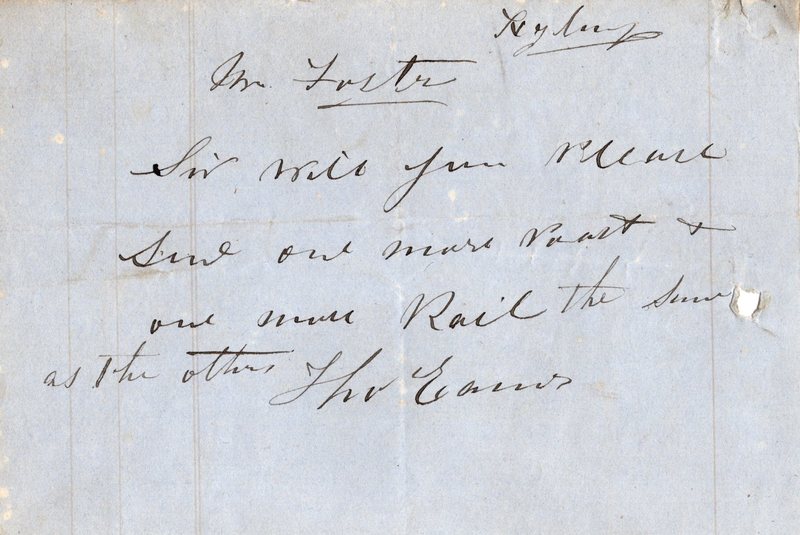 Mr. Foster
Sir will you Please
Send one more Post &
one more Rail the same
as the others Tho Eames